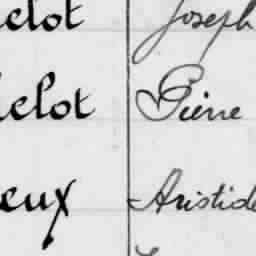 elot Joseph
elot Pierre
eux Aristide